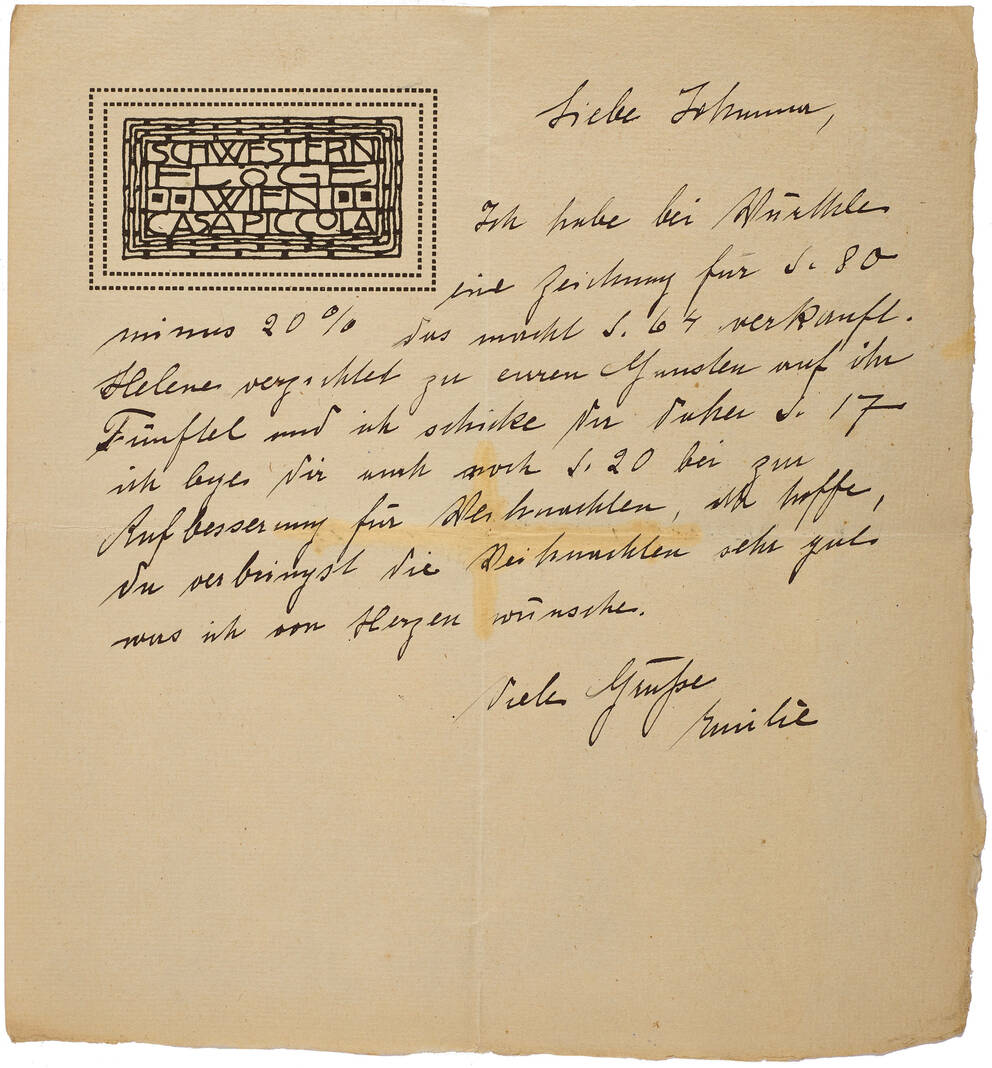 SCHWESTERN
FLÖGE
WIEN
CASA PICCOLA
Liebe Johanna,
Ich habe bei Würthle
eine Zeichnung für S. 80
minus 20% das macht S. 64 verkauft.
Helene verzichtet zu euren Gunsten auf ihr
Fünftel und ich schicke dir daher S. 17
ich lege dir auch noch S. 20 bei zur
Aufbesserung für Weihnachten, ich hoffe,
du verbringst die Weihnachten sehr gut
was ich von Herzen wünsche.
Viele Grüße
Emilie